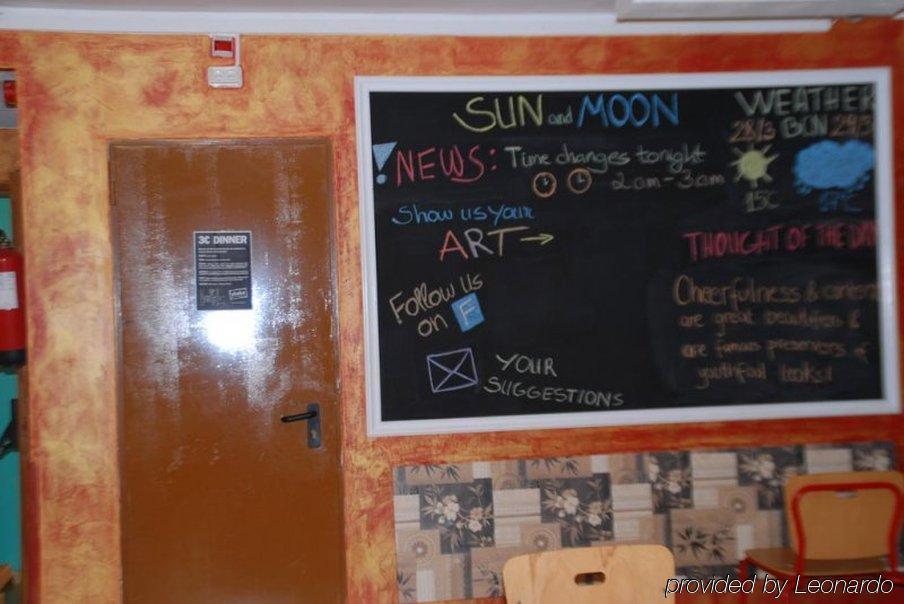 SUN and MOON
WEATHER
28/3 BCN 29/3
! NEWS: Time changes tonight
2am - 3am
15C
Show us your
ART →
THOUGHT OF THE DAY
Follow us
on F
Cheerfulness &
are great beautifiers &
are famous preservers of
youthful looks!!
YOUR
SUGGESTIONS
3C DINNER
provided by Leonardo